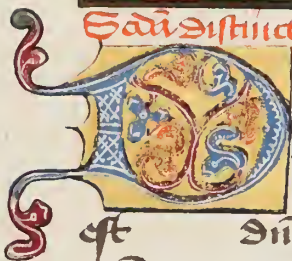 Scda distinct
D
est dn